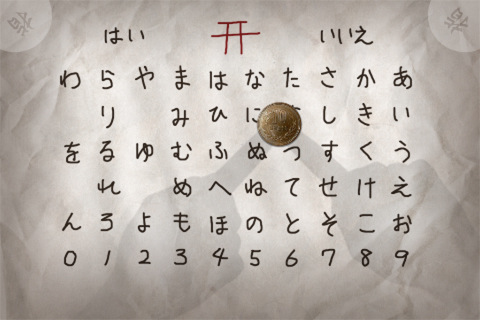 はい いいえ
わ ら や ま は な た さ か あ
り み ひ に し き い
を る ゆ む ふ ぬ つ す く う
れ め へ ね て せ け え
ん ろ よ も ほ の と そ こ お
0 1 2 3 4 5 6 7 8 9